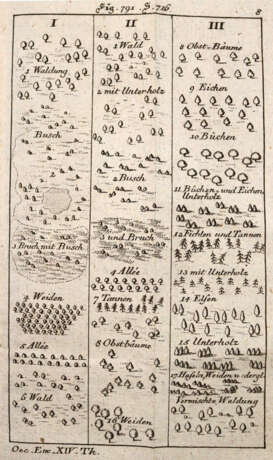 Fig. 791. S. 726.
8
I
1 Waldung
Busch
3 Bruch mit Busch
4 Weiden
5 Allée
5 Wald
II
1 Wald
2 mit Unterholz
2 Busch
3 und Bruch
4 Allée
7 Tannen
8 Obstbäume
10 Weiden
III
8 Obst-Bäume
9 Eichen
10 Büchen
11 Büchen und Eichen
Unterholz
12 Fichten und Tannen
13 mit Unterholz
14 Elsen
15 Unterholz
17 Haseln, Weiden u: dergl.
Vermischte Waldung
Oec. Enc. XIV. Th.